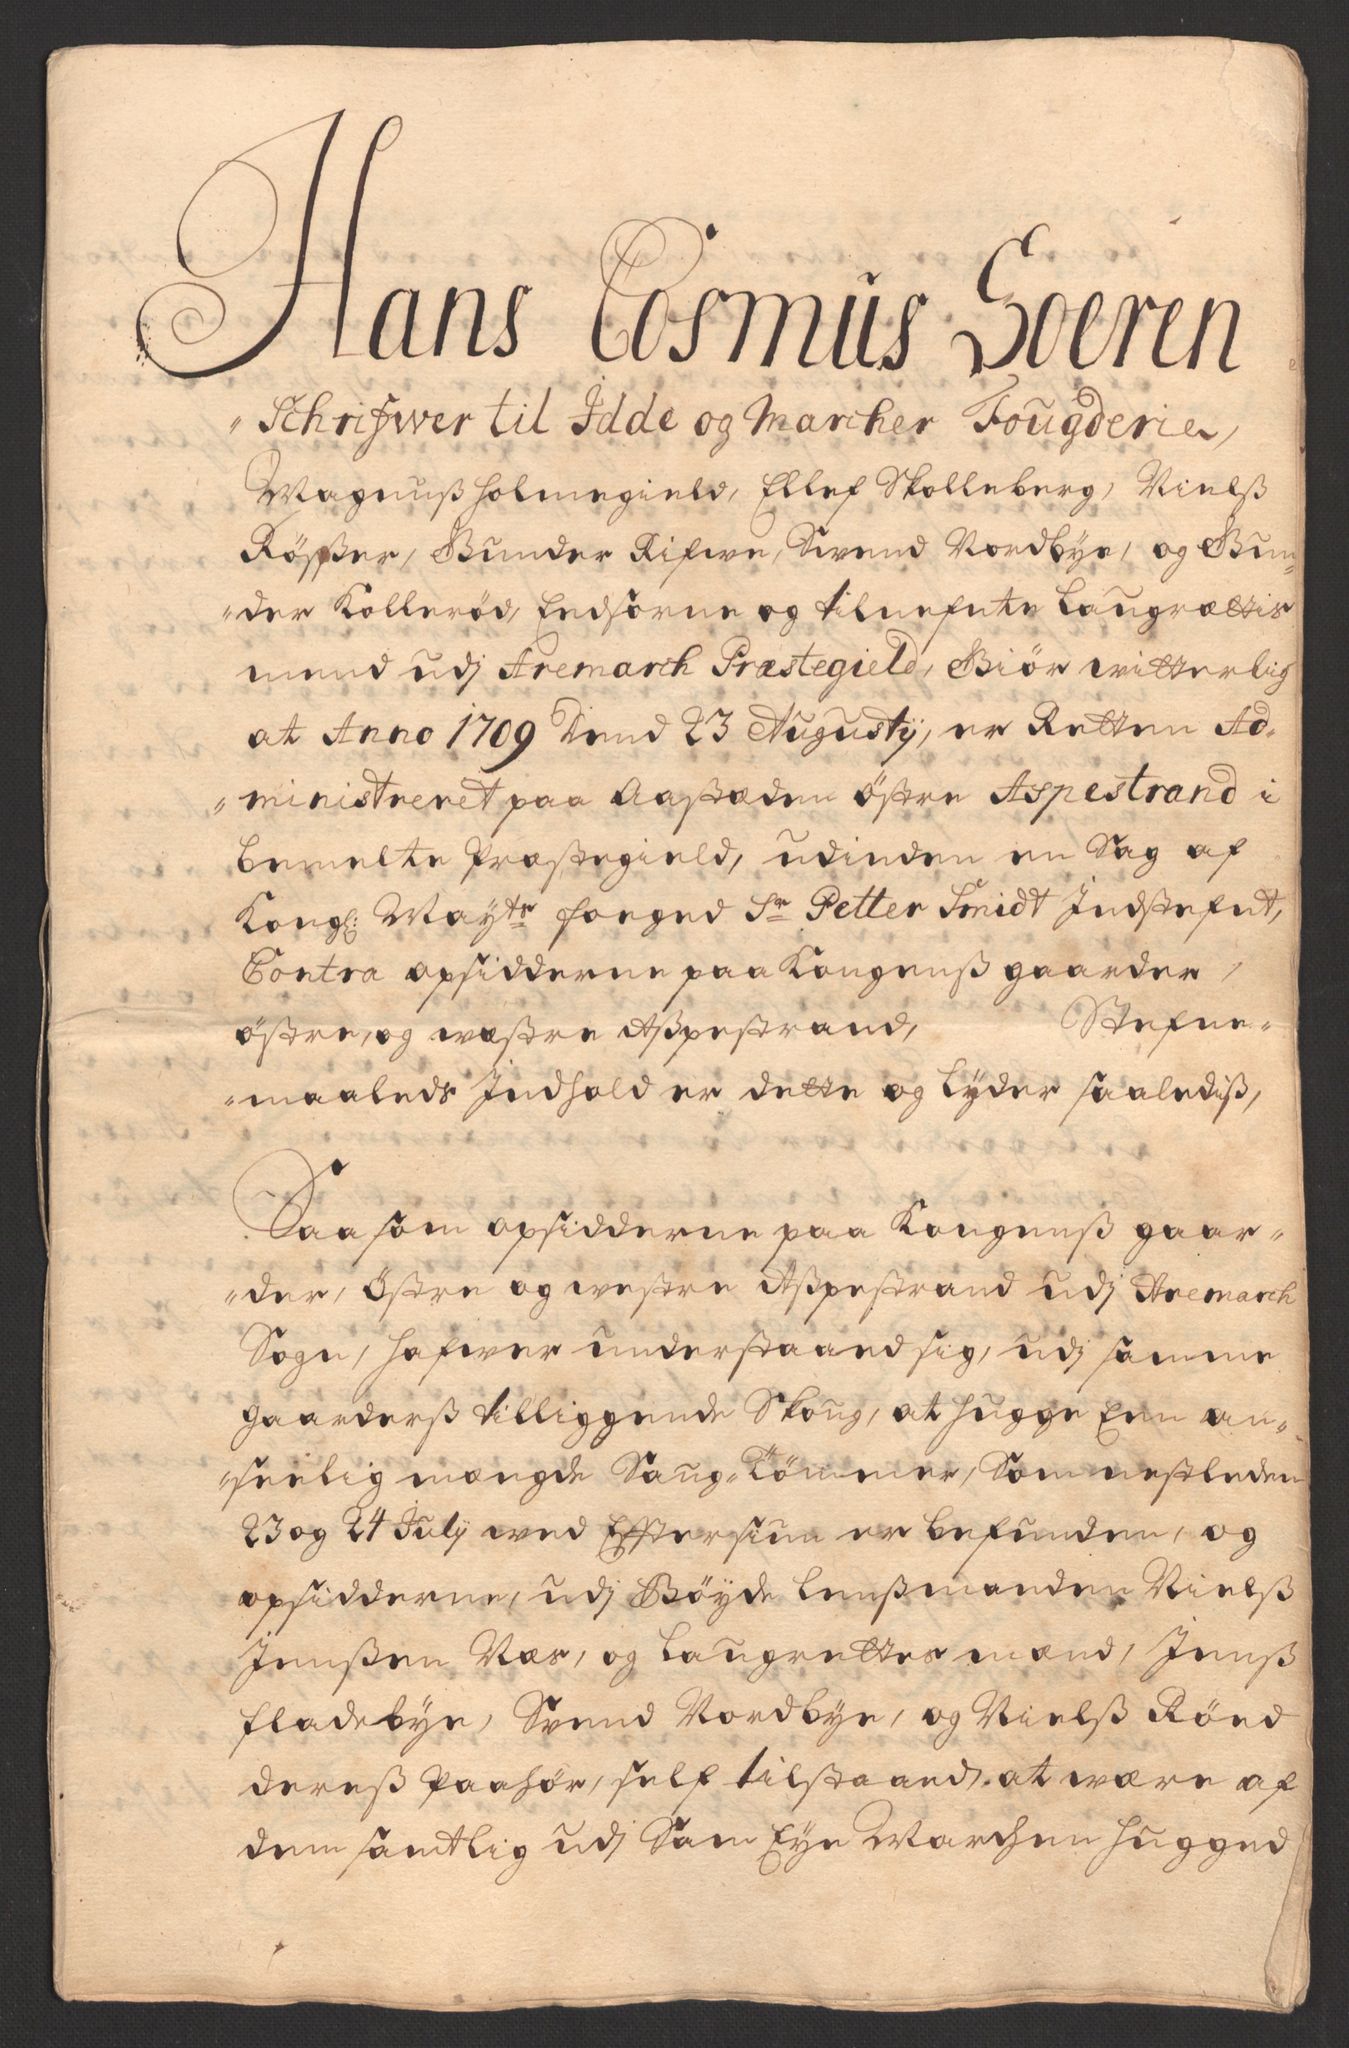 Hans Cosmus Soeren
"Schrifwer til Idde og Marcher Fougderie,
Magnuß Holmegield, Ellef Skolleberg, Nielß
Rößer, Gunder Rifwe, Swend Nordbye, og Gun„
„der Kollerød, Eedsorne og tilnefnte Laugrættis
mend udj Aremarch Præstegield, Giør witterlig
at Anno 1709 Dend 23 Augustij, er Retten Ad„
„ministreret paa Aastæden østre Aspestrand i
bemelte Præstegield, udinden en Sag af
Kongl: Mayts foeged Sr Petter Smidt Indstefnt,
Contra opsidderne paa Kongenß gaarder,
østre, og wæstre Aßpestrand, Stefne„
„maaleds Indhold er dette og lyder saalediß,
Saasom opsidderne paa Kongenß gaar„
„der, Østre og westre Aßpestrand udj Aremarch
Sogn, hafwer understaaed sig, udj samme
gaarderß tilliggende Skoug, at hugge Een an„
„seelig mængde Saug„Tömmer, Som nestleden
23 og 24 July wed Eftersiun er befunden, og
opsidderne, udj Bøyde lenßmanden Nielß
Jenßen Næs, og Laugrettes mænd, Jenß
fladebye, Svend Nordbye, og Nielß Röed
dereß Paahør, self tilstaaed, at være af
dem samtlig udj Sam Eye Marchen hugged